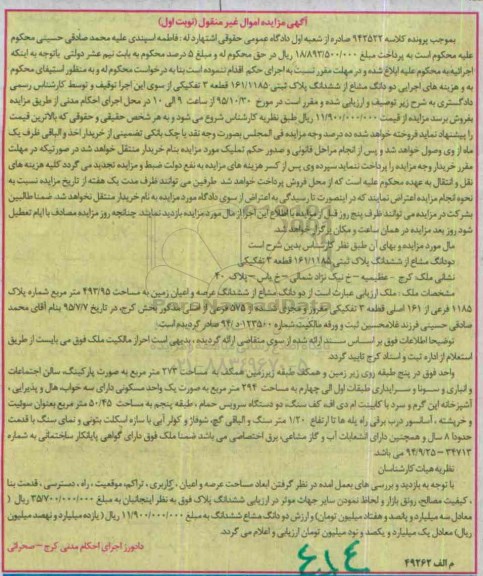 آگهی مزایده اموال غیر منقول (نوبت اول)
بموجب پرونده کلاسه ۹۴۲۵۲۲ صادره از شعبه اول دادگاه عمومی حقوقی اشتهارد له : فاطمه اسپندی علیه محمد صادقی حسینی محکوم
علیه محکوم است به پرداخت مبلغ ۱۸/۸۹۳/۵۰۰/۰۰۰ ریال در حق محکوم له و مبلغ ۵ درصد محکوم به بابت نیم عشر دولتی باتوجه به اینکه
اجرائیه به محکوم علیه ابلاغ شده و در مهلت مقرر نسبت به اجرای حکم اقدام ننموده است بنا به درخواست محکوم له و به منظور استیفای محکوم
به و هزینه های اجرایی دو دانگ مشاع از ششدانگ پلاک ثبتی ۱۶۱/۱۱۸۵ قطعه ۳ تفکیکی از سوی این اجرا توقیف و توسط کارشناس رسمی
دادگستری به شرح زیر توصیف و ارزیابی شده و مقرر است در مورخ ۹۵/۱۰/۳۰ از ساعت ۹ الی ۱۰ در محل اجرای احکام مدنی از طریق مزایده
بفروش برسد مزایده از قیمت ۱۱/۹۰۰/۰۰۰/۰۰۰ ریال طبق نظریه کارشناس شروع می شود و به هر شخص حقیقی و حقوقی که بالاترین قیمت
را پیشنهاد نماید فروخته خواهد شد ده درصد وجه مزایده فی المجلس بصورت وجه نقد یا چک بانکی تضمینی از خریدار اخذ و الباقی ظرف یک
ماه از وی وصول خواهد شد و پس از انجام مراحل قانونی و صدور حکم تملیک مورد مزایده بنام خریدار منتقل خواهد شد در صورتیکه در مهلت
مقرر خریدار وجه مزایده را پرداخت ننماید سپرده وی پس از کسر هزینه های مزایده به نفع دولت ضبط و مزایده تجدید می گردد کلیه هزینه های
نقل و انتقال به عهده محکوم علیه است که از محل فروش پرداخت خواهد شد طرفین می توانند ظرف مدت یک هفته از تاریخ مزایده نسبت به
نحوه انجام مزایده اعتراض نمایند که در اینصورت تا رسیدگی به اعتراض از سوی دادگاه مورد مزایده به نام خریدار منتقل نخواهد شد ضمنا طالبین
شرکت در مزایده می توانند ظرف پنج روز قبل از مزایده با اطلاع این اجرا از مال مورد مزایده بازدید نمایند. چنانچه روز مزایده مصادف با ایام تعطیل
شود روز بعد مزایده در همان ساعت و مکان برگزار خواهد شد.
مال مورد مزایده و بهای آن طبق نظر کارشناس بدین شرح است
دودانگ مشاع از ششدانگ پلاک ثبتی ۱۶۱/۱۱۸۵ قطعه ۳ تفکیکی
نشانی ملک کرج - عظیمیه - خ نیک نژاد شمالی - خ یاس - پلاک ۴۰
مشخصات ملک : ملک ارزیابی عبارت است از دو دانگ مشاع از ششدانگ عرصه و اعیان زمین به مساحت ۴۹۳/۹۵ متر مربع شماره پلاک
۱۱۸۵ فرعی از ۱۶۱ اصلی قطعه ۳ تفکیکی مفروز و مجزی شده از ۵۷۵ فرعی از اصلی مذکور بخش کرج، در تاریخ ۹۵/۷/۷ بنام آقای محمد
صادقی حسینی فرزند غلامحسین ثبت و ورقه مالکیت شماره ۱۲۳۵۰۰ د/۹۴ صادر گردیده است.
توضیحا اطلاعات فوق بر اساس سند ارائه شده از سوی متقاضی ارائه گردیده ، بدیهی است احراز مالکیت ملک فوق می بایست از طریق
استعلام از اداره ثبت و اسناد کرج تایید گردد.
واحد فوق در پنج طبقه روی زیر زمین و همکف طبقه زیرزمین همکف به مساحت ۲۷۳ متر مربع به صورت پارکینگ، سالن اجتماعات
و انباری و سونا و سرایداری طبقات اول الی چهارم به مساحت ۲۹۴ متر مربع به صورت یک واحد مسکونی دارای سه خواب، هال و پذیرایی ،
آشپزخانه این گرم و سرد با کابینت ام دی اف، کف سنگ، دو دستگاه سرویس حمام ، طبقه پنجم به مساحت ۵۰/۴۵ متر مربع بعنوان سوئیت
و خرپشته ، آسانسور درب برقی راه پله ها تا ارتفاع ۱/۲۰ متر سنگ و الباقی گچ، شوفاژ و کولر آبی با سازه اسکلت بتونی و نمای سنگ با قدمت
حدودا ۸ سال و همچنین دارای انشعابات آب و گاز مشاعی، برق اختصاصی می باشد ضمنا ملک فوق دارای گواهی پایانکار ساختمانی به شماره
۳۴۷۱۳ - ۹۴/۹/۲۵ می باشد.
نظریه هیات کارشناسان
با توجه به بازدید و بررسی های بعمل امده در نظر گرفتن ابعاد مساحت عرصه و اعیان ، کاربری ، تراکم، موقعیت ، راه ، دسترسی ، قدمت بنا
، کیفیت مصالح، رونق بازار و لحاظ نمودن سایر جهات موثر در ارزیابی ششدانگ پلاک فوق به نظر اینجانبان به مبلغ ۳۵/۷۰۰/۰۰۰/۰۰۰ ریال (
معادل سه میلیارد و پانصد و هفتاد میلیون تومان) و ارزش دو دانگ مشاع ششدانگ به مبلغ ۱۱/۹۰۰/۰۰۰/۰۰۰ ریال ( یازده میلیارد و نهصد میلیون
ریال) معادل یک میلیارد و یکصد و نود میلیون تومان ارزیابی و اعلام می گردد.
دادورز اجرای احکام مدنی کرج - صحرائی
م الف ۴۹۲۶۲
۶۱۴